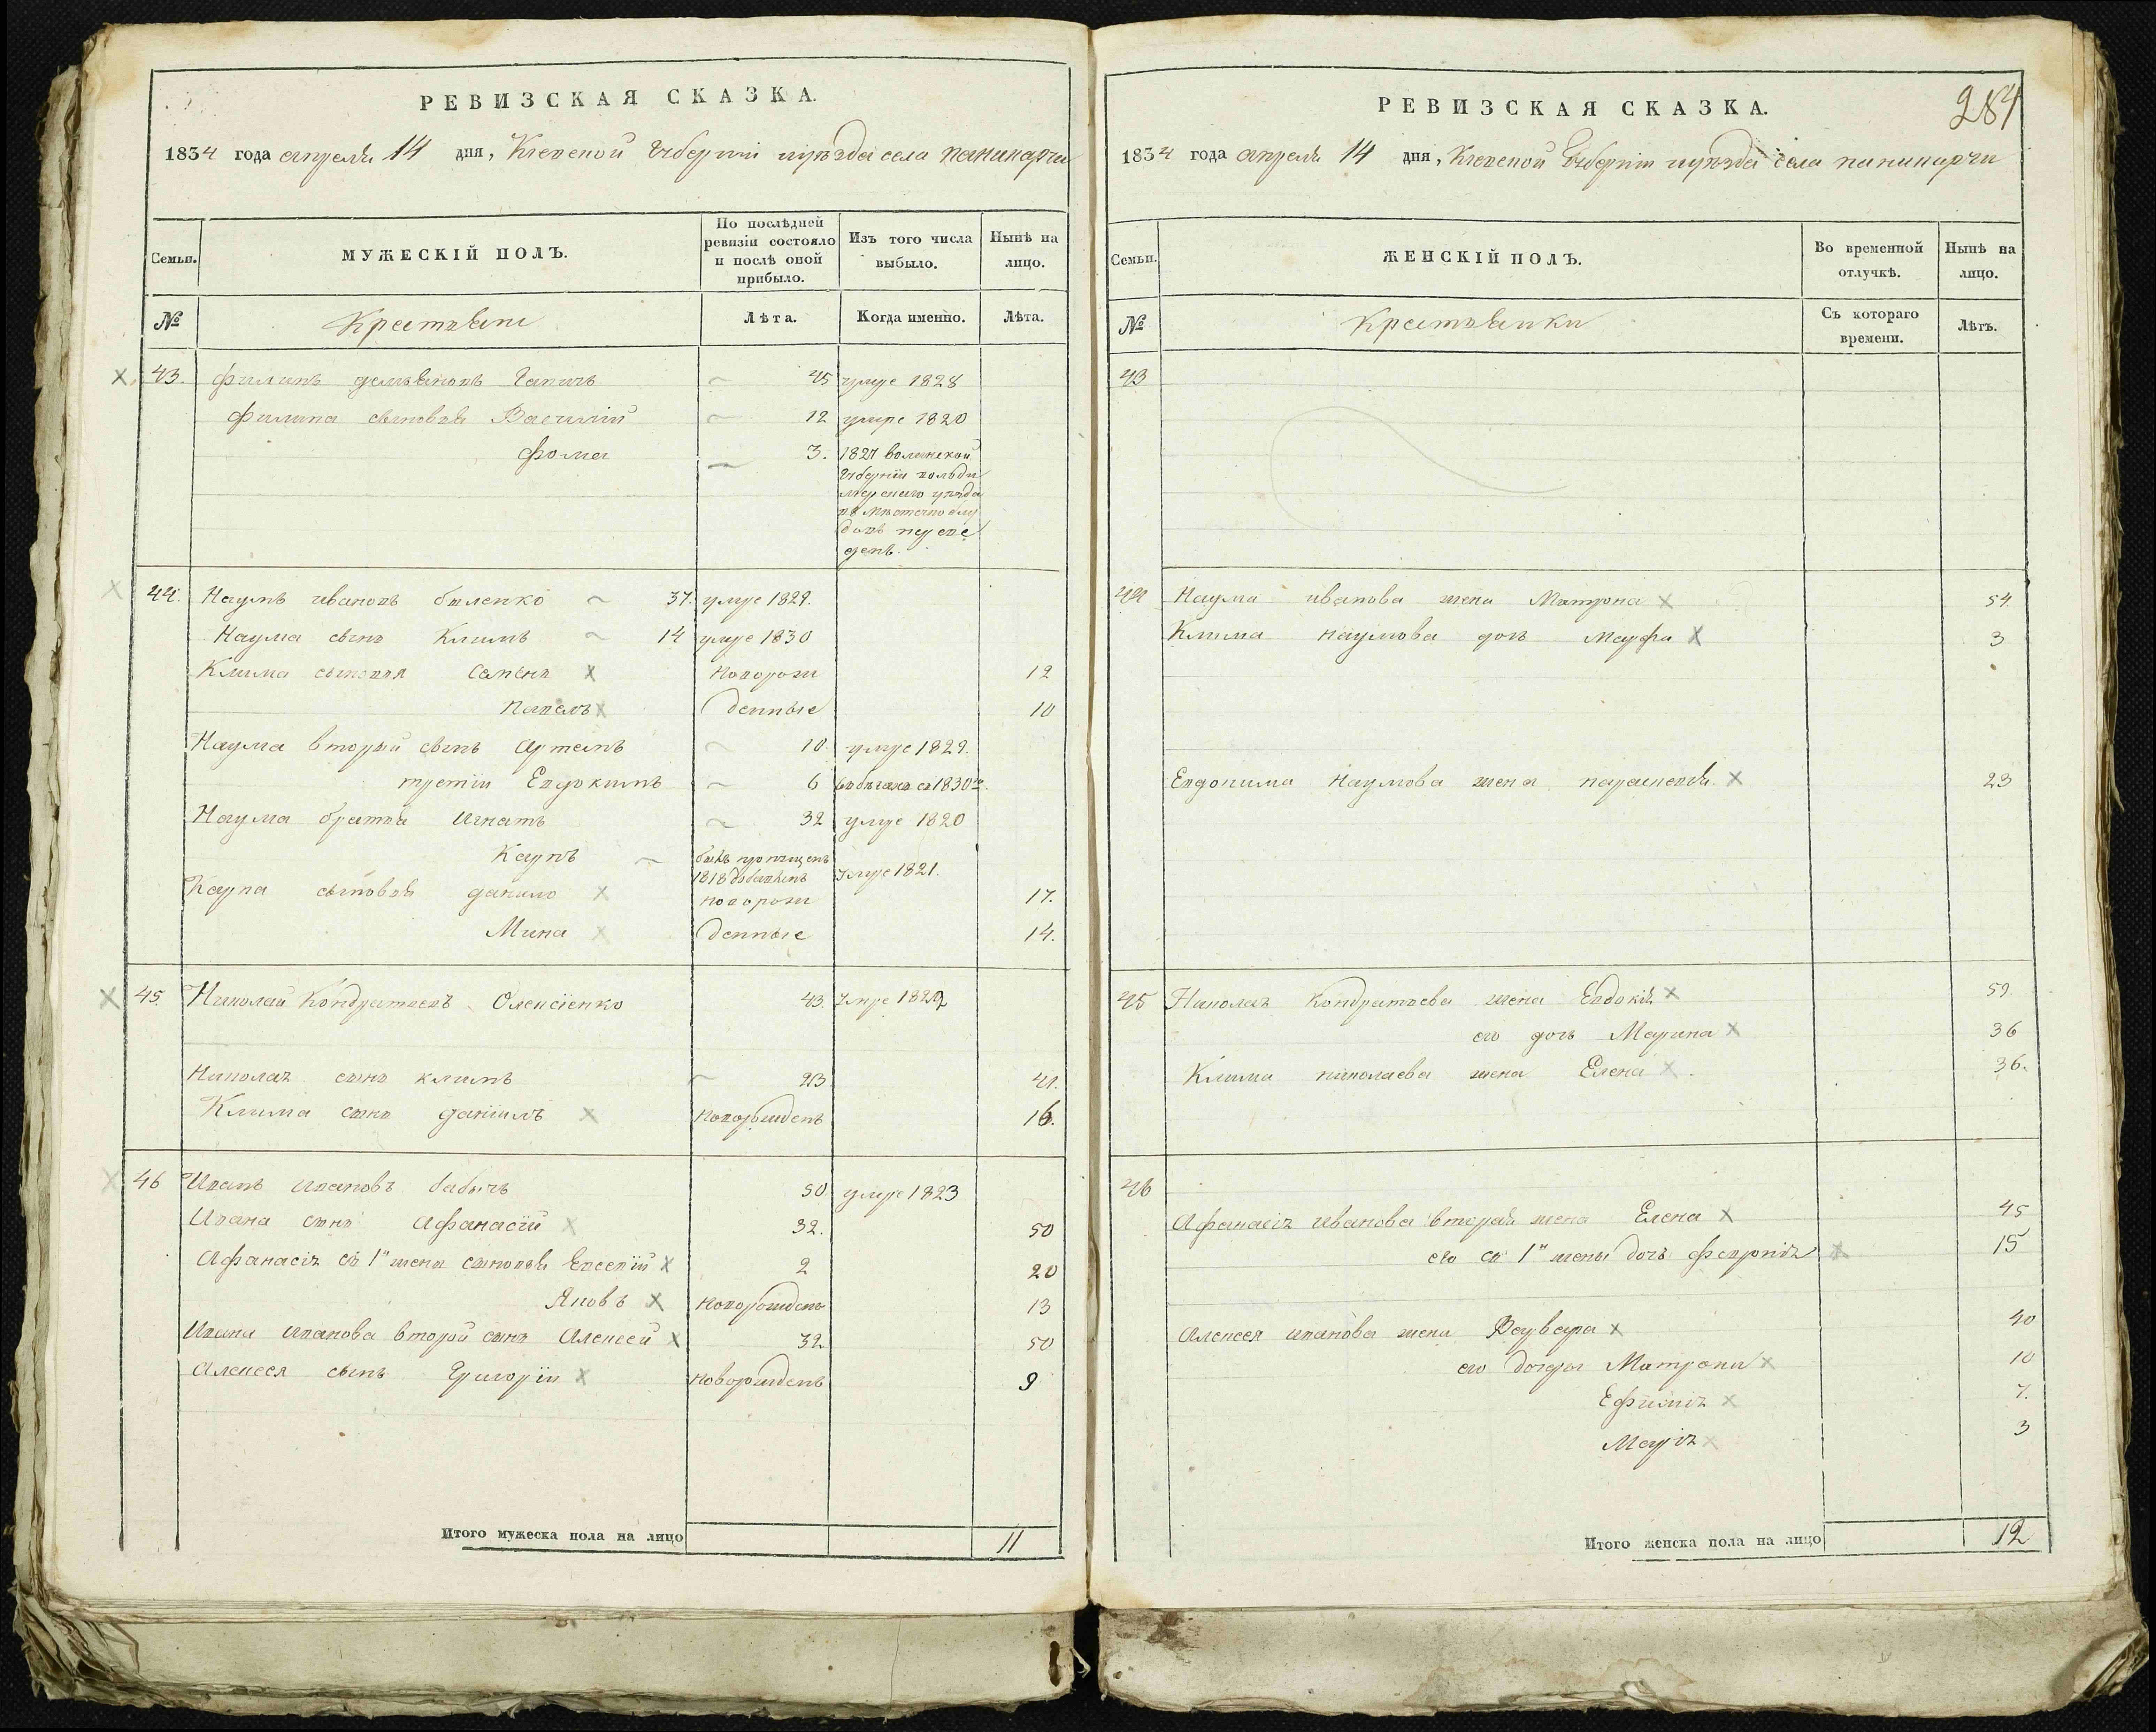 РЕВИЗСКАЯ СКАЗКА.
1834 года апреля 14 дня, Киевской Губернии и уѣзда села
Семьи.
МУЖЕСКІЙ ПОЛЪ.
По послѣдней ревизіи состояло и послѣ оной прибыло.
Изъ того числа выбыло.
Нынѣ на лицо.
№
Крестьяне
Лѣта.
Когда именно.
Лѣта.
43. Филипъ демьяновъ Гапичъ 45 умре 1828
Филипа сыновья Василій 12 умре 1820
Фома 3. 1827 волынской
Губерніи
уѣзда
въ мѣстечко
перевe
денъ.
44. Наумъ ивановъ биленко 37. умре 1829.
Наума сынъ Климъ 14 умре 1830
Клима сыновья Семенъ х Новорож 12
павелъ х денные 10
Наума вторый сынъ артемъ 10. умре 1829.
третіи Евдокимъ 6 въ бѣгахъ съ 1830го.
Наума братья Игнатъ 32 умре 1820
Карпъ былъ пропущенъ
1818 добавленъ Умре 1821.
Карпа сыновья данило х новорож 17.
Мина х денные 14.
45. Николай Кондратьевъ Олексіенко 43. Умре 1822
Николая сынъ климъ 23 41.
Клима сынъ даніилъ х новорожденъ 16.
46 Иванъ ивановъ бабичъ 50 умре 1823
Ивана сынъ Афанасій х 32. 50
Афанасія съ 1й жены сыновья Евсевій х 2 20
Яковъ х новорожденъ 13
Ивана иванова второй сынъ Алексей х 32 50
Алексея сынъ Григоріи х новорожденъ 9
Итого мужеска пола на лицо 11
284
РЕВИЗСКАЯ СКАЗКА.
1834 года апреля 14 дня, Киевской Губерніи и уѣзда села
Семьи.
ЖЕНСКІЙ ПОЛЪ.
Во временной отлучкѣ.
Нынѣ на лицо.
№
Крестьянки
Съ котораго времени.
Лѣтъ.
43
44 Наума иванова жена Матрона х 54.
Клима наумова дочь Марфа х 3
Евдокима Наумова жена параскевья х 23
45 Николая Кондратьева жена Евдокія х 59.
его дочь Марина х 36
Клима николаева жена Елена х 36.
46
Афанасія иванова вторая жена Елена х 45
его съ 1й жены дочь Февронія х 15
Алексея иванова жена Варвара х 40
его дочери Матрона х 10
Ефимія х 7.
Марія х 3
Итого женска пола на лицо 12